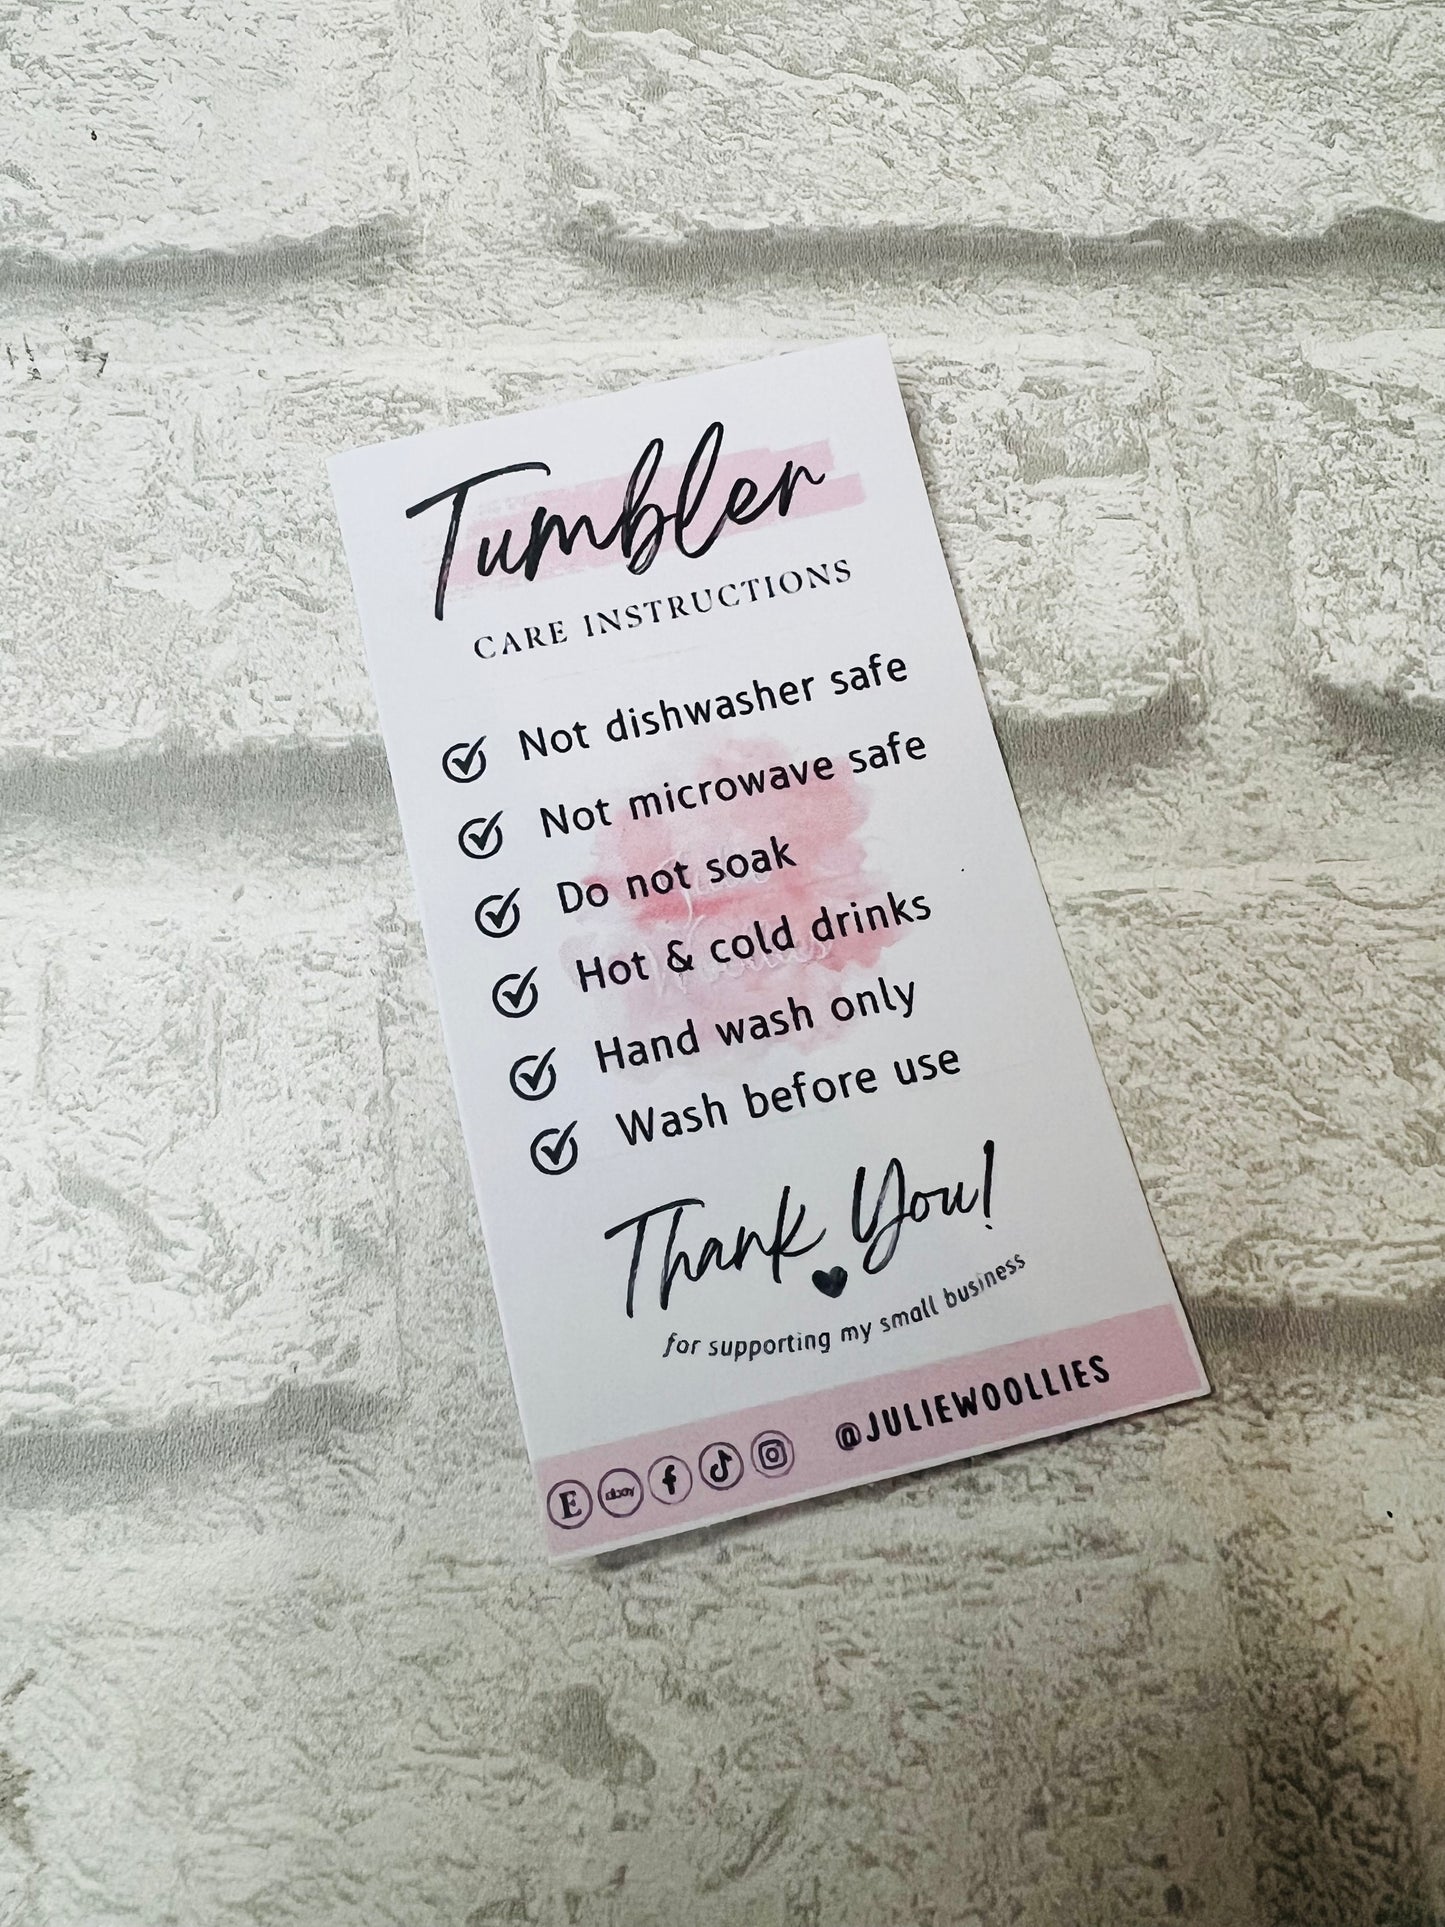 Tumbler
CARE INSTRUCTIONS
Not dishwasher safe
Not microwave safe
Do not soak
Hot & cold drinks
Hand wash only
Wash before use
Thank You!
for supporting my small business
E ebay f @JULIEWOOLLIES